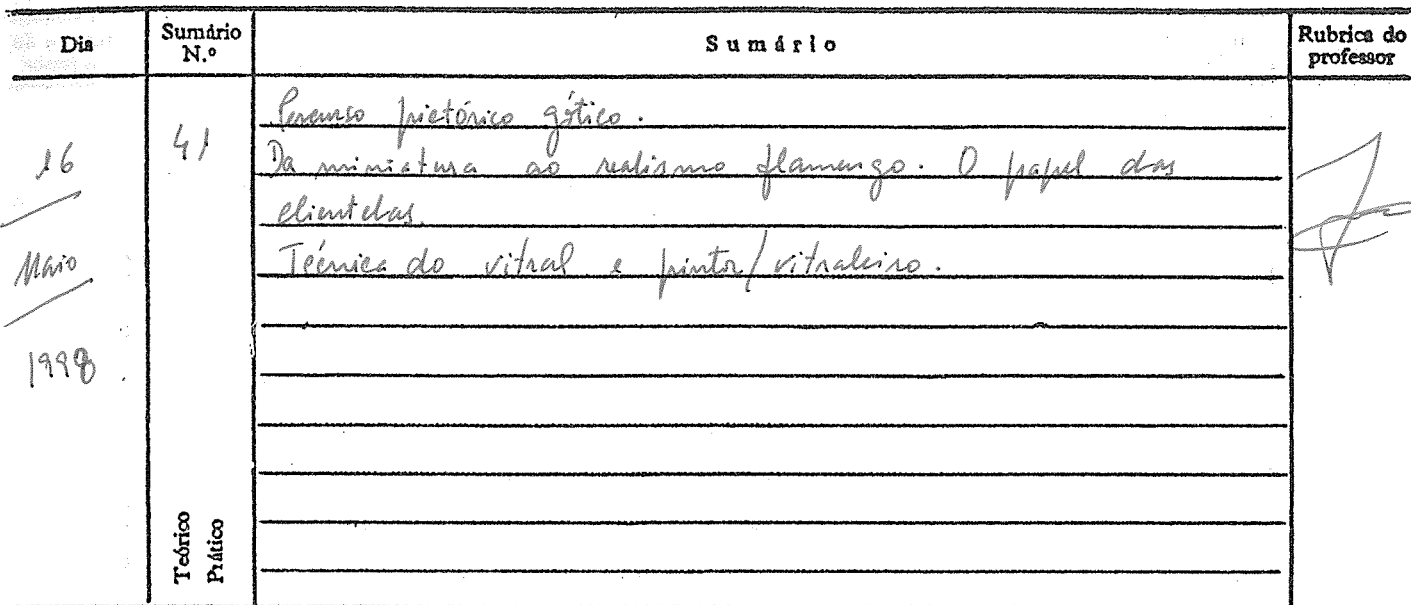 Dia
Sumário N.º
Sumário
Rubrica do professor
16
Maio
1998
41
Percurso pictórico gótico.
Da miniatura ao realismo flamengo. O papel das
clientelas.
Técnica do vitral e pintor/vitraleiro.
Teórico
Prático